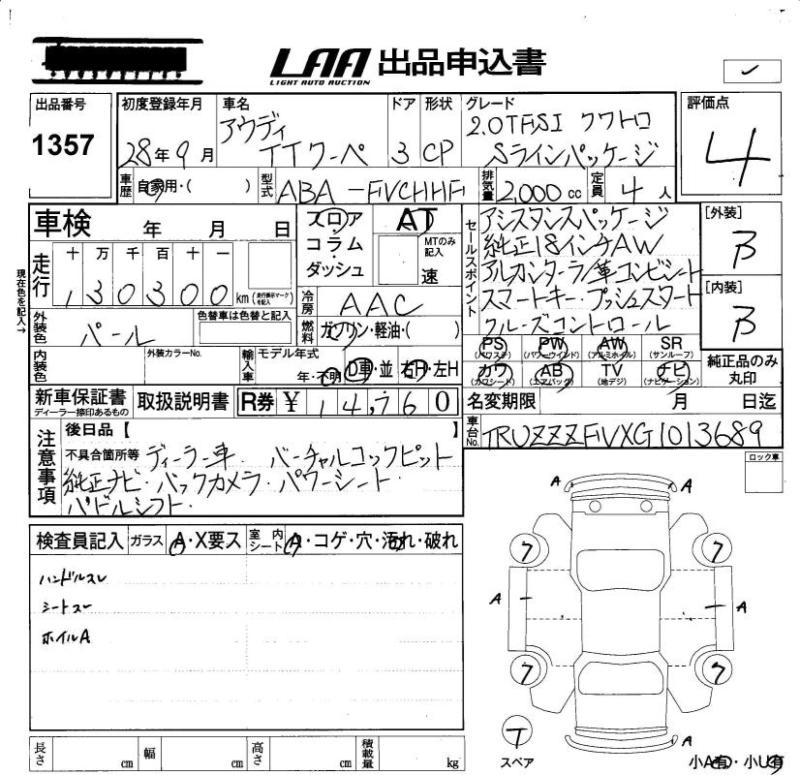 LAA 出品申込書
LIGHT AUTO AUCTION
出品番号
1357
初度登録年月
28年9月
車名
アウディ
TTクーペ
ドア
3
形状
CP
グレード
2.0TFSI クワトロ
Sラインパッケージ
評価点
4
車歴
自家用・( )
型式
ABA-FVCHHF
排気量
2,000 cc
定員
4人
車検 年 月 日
走行
十 万 千 百 十 一
130300 km
(走行囲示マーク)を記入
現在色を記入→
外装色
パール
色替車は色替と記入
内装色
外装カラーNo.
輸入車
モデル年式
年・不明
D車・並 右H・左H
フロア
コラム・
ダッシュ
AT
MTのみ記入
速
冷房
AAC
燃料
ガソリン・軽油・( )
セールスポイント
アシスタンスパッケージ
純正18インチAW
アルカンターラ/革コンビシート
スマートキー・プッシュスタート
クルーズコントロール
PS
(パワステ)
PW
(パワーウインド)
AW
(アルミホイル)
SR
(サンルーフ)
カワ
(カワシート)
AB
(エアバック)
TV
(地デジ)
ナビ
(ナビゲーション)
純正品のみ
丸印
[外装]
B
[内装]
B
新車保証書
ディーラー捺印あるもの
取扱説明書
R券 ¥ 14,760
名変期限 月 日迄
車台No.
TRUZZZFVXG1013689
注意事項
後日品【 】
不具合箇所等 ディーラー車・バーチャルコックピット
純正ナビ・バックカメラ・パワーシート・
パドルシフト・
ロック車
検査員記入
ガラス
A・X要ス
室内シート
A・コゲ・穴・汚れ・破れ
ハンドルスレ
シートスレ
ホイルA
A A
7 7
A A
7 7
A A
T
スペア
小A有・小U有
長さ cm 幅 cm 高さ cm 積載量 kg